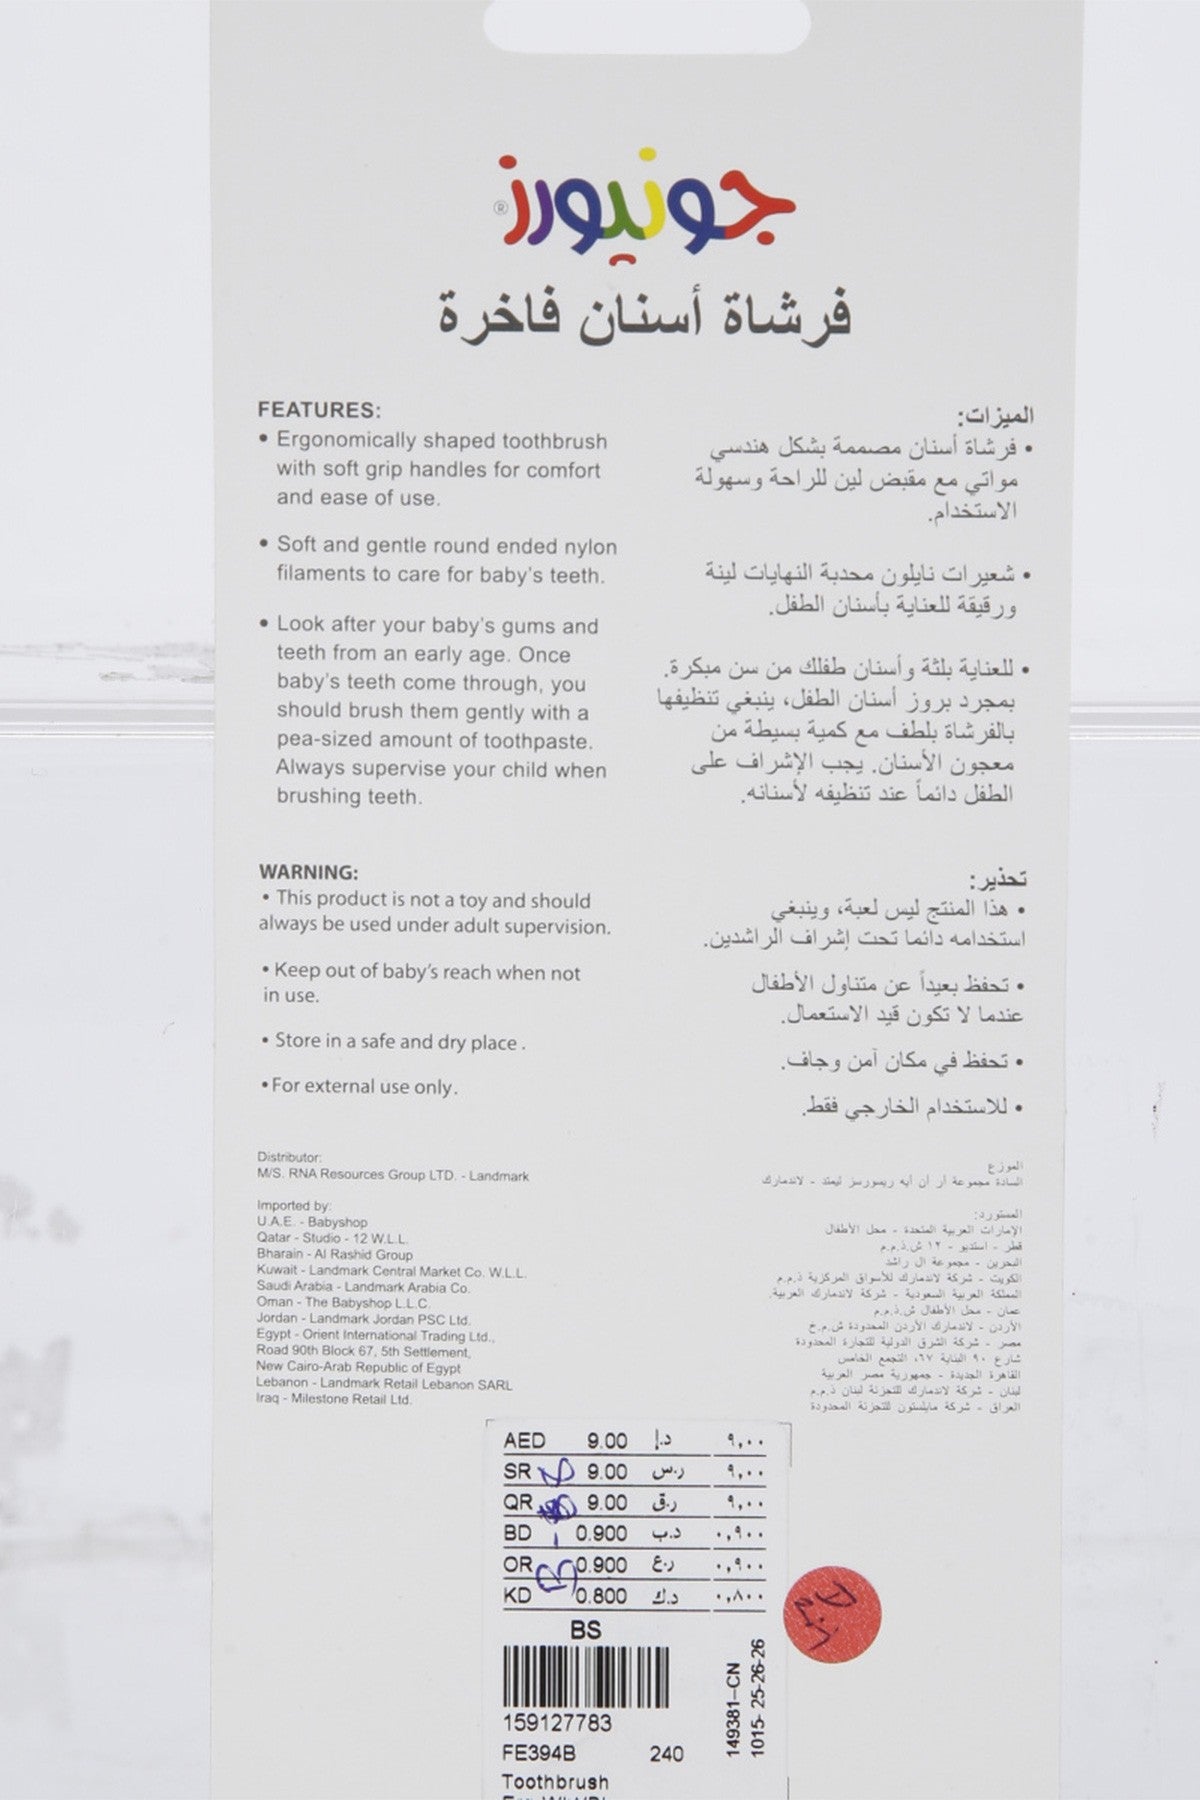 جونيورز
®
فرشاة أسنان فاخرة
FEATURES:
• Ergonomically shaped toothbrush
with soft grip handles for comfort
and ease of use.
• Soft and gentle round ended nylon
filaments to care for baby's teeth.
• Look after your baby's gums and
teeth from an early age. Once
baby's teeth come through, you
should brush them gently with a
pea-sized amount of toothpaste.
Always supervise your child when
brushing teeth.
الميزات:
• فرشاة أسنان مصممة بشكل هندسي
مواتي مع مقبض لين للراحة وسهولة
الاستخدام.
• شعيرات نايلون محدبة النهايات لينة
ورقيقة للعناية بأسنان الطفل.
• للعناية بلثة وأسنان طفلك من سن مبكرة.
بمجرد بروز أسنان الطفل، ينبغي تنظيفها
بالفرشاة بلطف مع كمية بسيطة من
معجون الأسنان. يجب الإشراف على
الطفل دائماً عند تنظيفه لأسنانه.
WARNING:
• This product is not a toy and should
always be used under adult supervision.
• Keep out of baby's reach when not
in use.
• Store in a safe and dry place .
• For external use only.
تحذير:
• هذا المنتج ليس لعبة، وينبغي
استخدامه دائما تحت إشراف الراشدين.
• تحفظ بعيداً عن متناول الأطفال
عندما لا تكون قيد الاستعمال.
• تحفظ في مكان آمن وجاف.
• للاستخدام الخارجي فقط.
Distributor:
M/S. RNA Resources Group LTD. - Landmark
Imported by:
U.A.E. - Babyshop
Qatar - Studio - 12 W.L.L.
Bharain - Al Rashid Group
Kuwait - Landmark Central Market Co. W.L.L.
Saudi Arabia - Landmark Arabia Co.
Oman - The Babyshop L.L.C.
Jordan - Landmark Jordan PSC Ltd.
Egypt - Orient International Trading Ltd.,
Road 90th Block 67, 5th Settlement,
New Cairo-Arab Republic of Egypt
Lebanon - Landmark Retail Lebanon SARL
Iraq - Milestone Retail Ltd.
الموزع
السادة مجموعة ار ان ايه ريسورسز ليمتد - لاندمارك
المستورد:
الإمارات العربية المتحدة - محل الأطفال
قطر - استديو - ١٢ ش.ذ.م.م
البحرين - مجموعة ال راشد
الكويت - شركة لاندمارك للأسواق المركزية ذ.م.م
المملكة العربية السعودية - شركة لاندمارك العربية.
عمان - محل الأطفال ش.ذ.م.م
الأردن - لاندمارك الأردن المحدودة ش.م.خ
مصر - شركة الشرق الدولية للتجارة المحدودة
شارع ٩٠ البناية ٦٧، التجمع الخامس
القاهرة الجديدة - جمهورية مصر العربية
لبنان - شركة لاندمارك للتجزئة لبنان ذ.م.م
العراق - شركة مايلستون للتجزئة المحدودة
AED 9.00 د.إ ٩,٠٠
SR 9.00 ر.س ٩,٠٠
QR 9.00 ر.ق ٩,٠٠
BD 0.900 د.ب ٠,٩٠٠
OR 0.900 ر.ع ٠,٩٠٠
KD 0.800 د.ك ٠,٨٠٠
BS
159127783
FE394B 240
Toothbrush
149381-CN
1015- 25-26-26